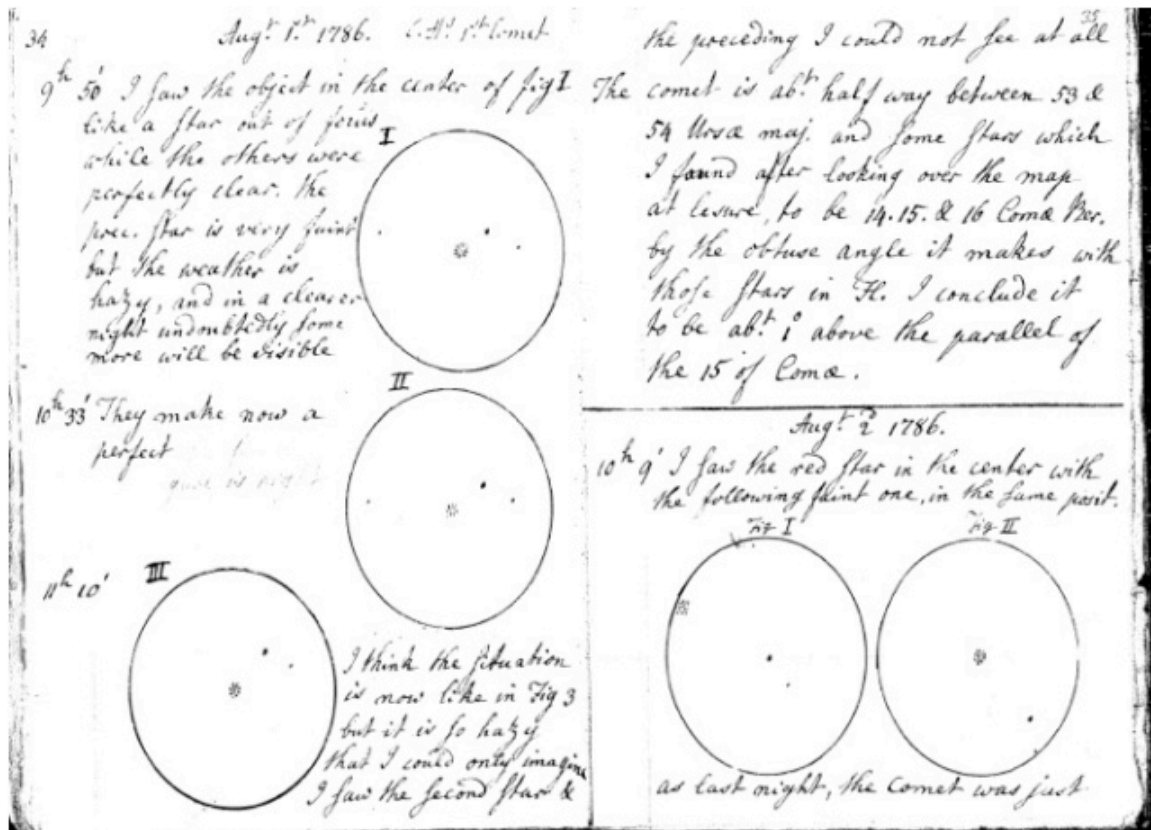 34
Augt. 1st. 1786. C. Hs. 1st Comet
9h 50' I saw the object in the center of fig I
like a star out of focus
while the others were
perfectly clear. the
prec. star is very faint
but the weather is
hazy, and in a clearer
night undoubtedly some
more will be visible
I
10h 33' They make now a
perfect
II
11h 10'
III
I think the situation
is now like in Fig 3
but it is so hazy
that I could only imagine
I saw the second star &
35
the preceding I could not see at all
The comet is abt. half way between 53 &
54 Ursæ maj. and some stars which
I found after looking over the map
at lesure, to be 14. 15. & 16 Comæ Ber.
by the obtuse angle it makes with
those stars in Fl. I conclude it
to be abt. 1° above the parallel of
the 15 of Comæ.
Augt. 2 1786.
10h 9' I saw the red star in the center with
the following faint one, in the same posit.
Fig I
Fig II
as last night, the Comet was just